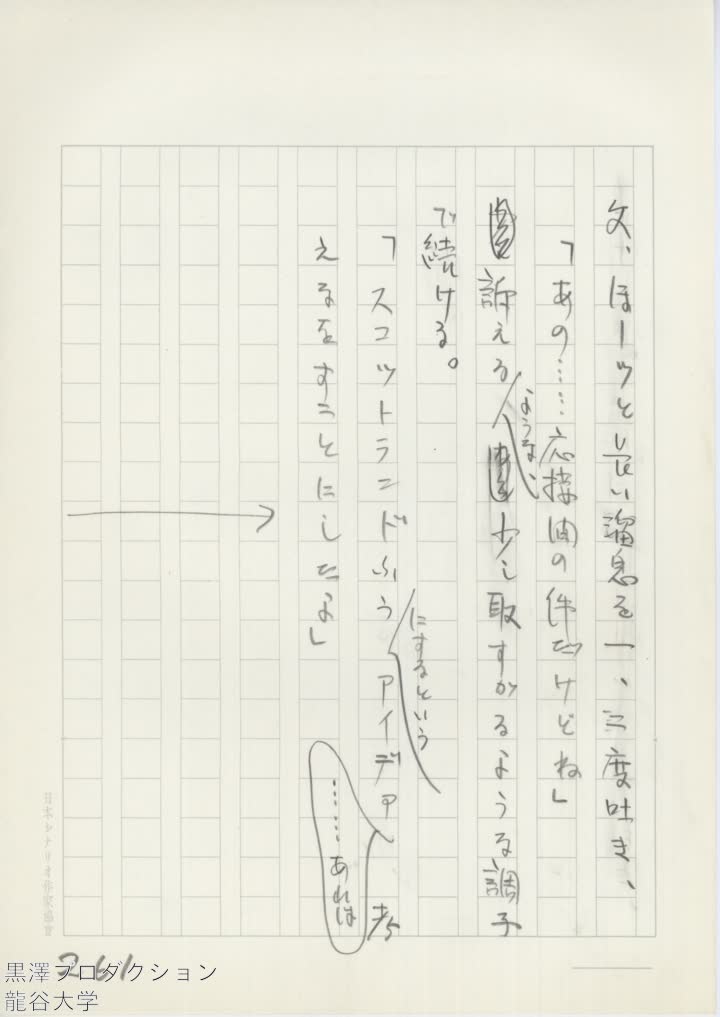 文、ほーッと長い溜息を一、二度吐き、
「あの……応接間の件だけどね」
訴えるような、少し取すがるような調子
で続ける。
「スコットランドふうにするというアイデア……あれは考
えなをすことにしたよ」
日本シナリオ作家協会
261
黒澤プロダクション
龍谷大学